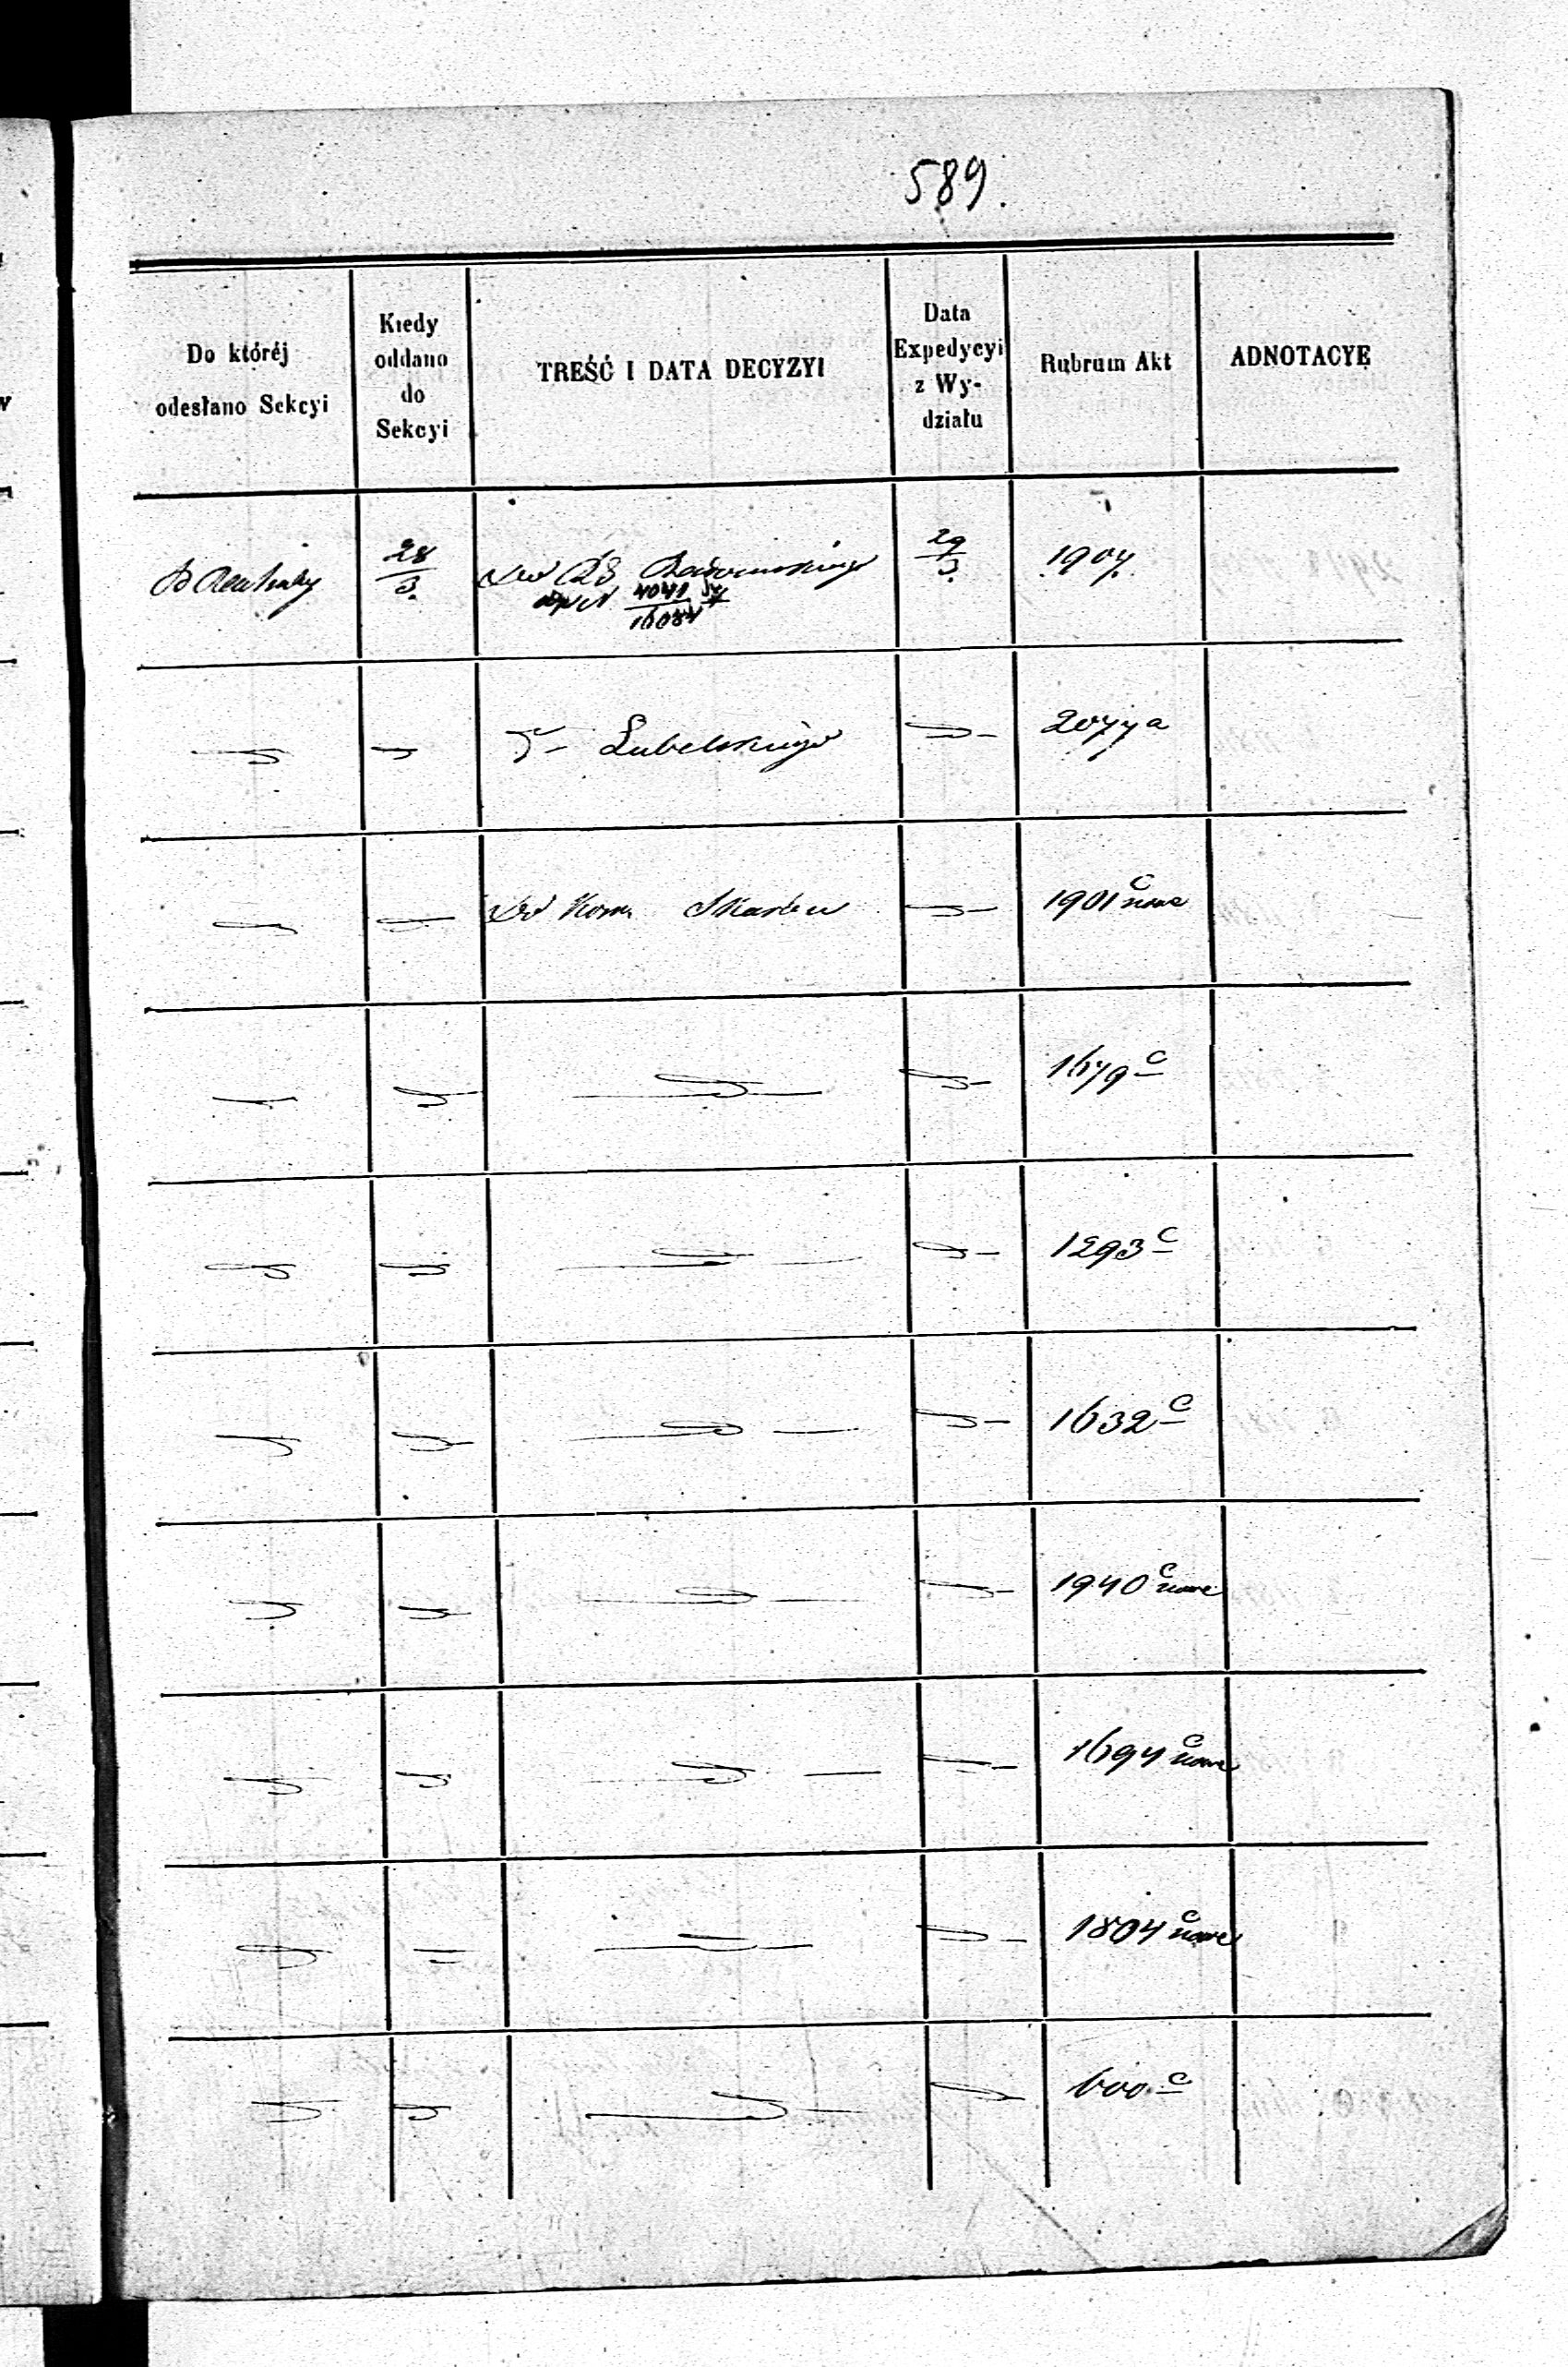 589.
Do któréj
odesłano Sekcyi
Kiedy
oddano
do
Sekcyi
TREŚĆ I DATA DECYZYI
Data
Expedycyi
z Wy-
działu
Rubrum Akt
ADNOTACYE
28/3. Do RG Radomskiego 29/3. 1907.
4041/16084
Lubelskiego 2077a
Do Kom Skarbu 1901 c nowe
1679 c
1293 c
1632 c
1940 c nowe
1694 c nowe
1804 c nowe
600. c